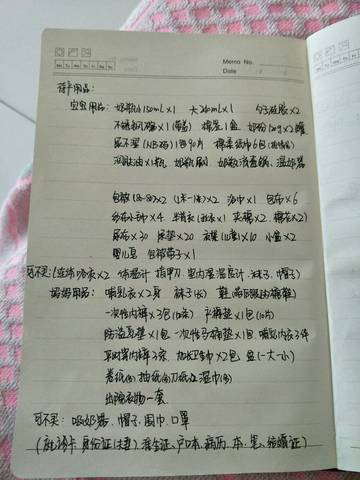 Memo No.
Date
待产用品:
宝宝用品: 奶瓶小150ml×1 大260ml×1 勺子硅胶×2
不锈钢碗×1(带盖) 棉签1盒 奶粉130g×2罐
尿不湿(NB码)1包90片 棉柔纸巾6包
润肤油×1瓶 奶瓶刷 奶瓶消毒锅、温奶器
包被(80-80)×2 (1厚-1薄)×2 浴巾×1 包布×6
纱布小帕×4 半背衣(和衣)×1 夹裤×2 棉花×2
尿布×30 尿垫×20 衣架(儿童)×10 小盆×2
婴儿皂 包被带子×1
可不买:(连体哈衣×2 体温计 指甲刀 室内湿温度计 袜子 帽子)
妈妈用品: 哺乳衣×2身 袜子(长) 鞋(带后跟的棉鞋)
一次性内裤×3包(10条) 产褥垫×1包(10片)
防溢乳垫×1包 一次性马桶垫×1包 哺乳内衣3件
平时穿内裤3条 加长卫生巾×2包 盆(一大一小)
卷纸 抽纸 刀纸 湿巾
出院衣物一套
可不买: 吸奶器、帽子、围巾、口罩
(就诊卡 身份证(夫妻) 准生证、户口本、病历、本、笔、结婚证)